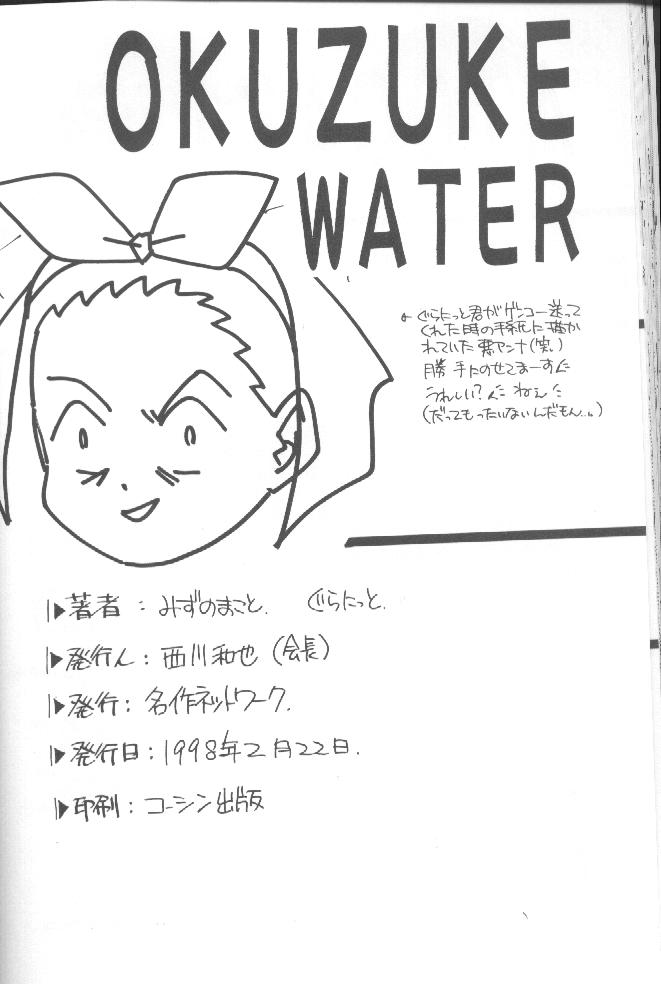 OKUZUKE
WATER
← ぐらにっと君がゲンコー送って
くれた時の手紙に描か
れていた悪アンナ(笑)
勝手にのせてまーす
うれしい? ねぇ
(だってもったいないんだもん…。)
▶著者 : みずのまこと. ぐらにっと.
▶発行人 : 西川和也 (会長)
▶発行 : 名作ネットワーク.
▶発行日 : 1998年2月22日.
▶印刷 : コーシン出版